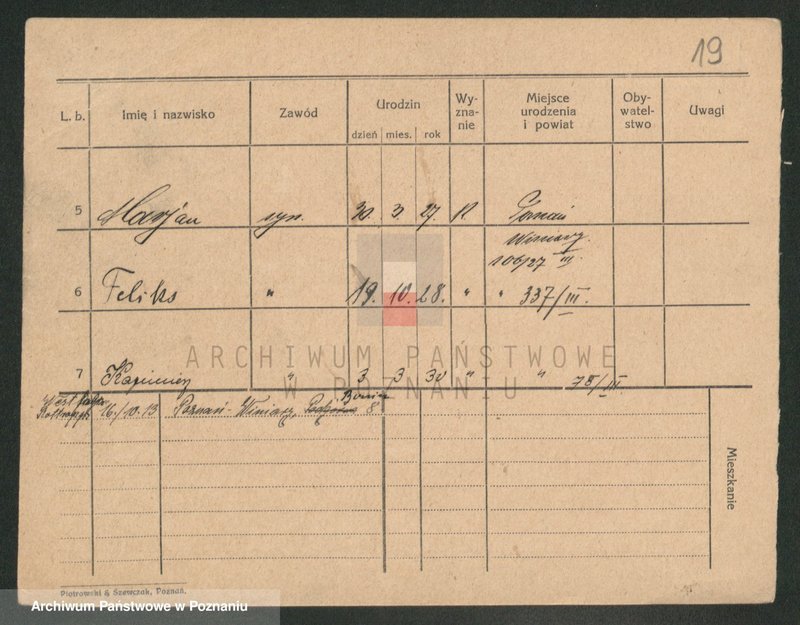 19
L. b. Imię i nazwisko Zawód Urodzin Wy-zna-nie Miejsce urodzenia i powiat Oby-watel-stwo Uwagi
dzień mies. rok
5 Marjan syn. 30. 3. 27. R Poznań
Winiary
106/27 III
6 Feliks " 19. 10. 28. " " 337/III.
7 Kazimierz " 3 3 30 " " 78/III
ARCHIWUM PAŃSTWOWE
W POZNANIU
16/10.13 Poznań-Winiary, 8
Mieszkanie
Piotrowski & Szewczak, Poznań.
Archiwum Państwowe w Poznaniu